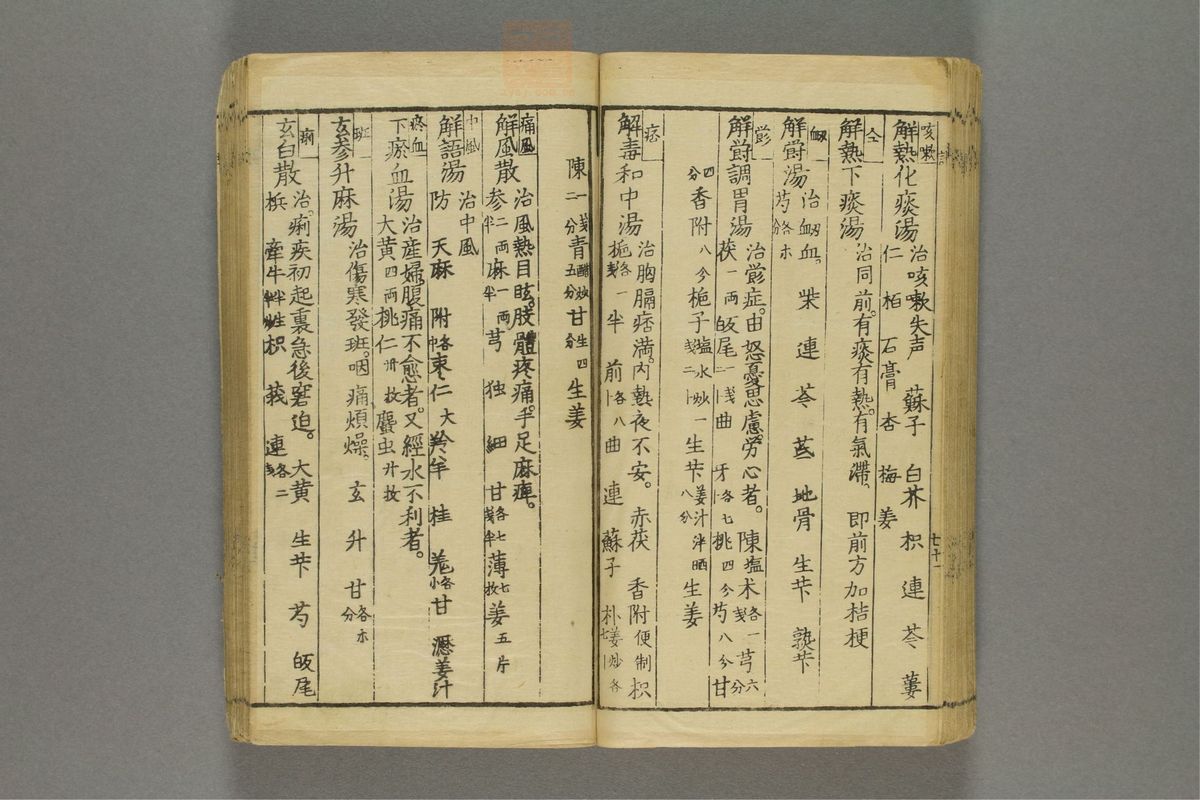 咳嗽
解熱化痰湯
治咳嗽失声 蘇子 白芥 枳 連 芩 蔞
仁 栢 石膏 杏 梅 姜
七十一
仝
解熱下痰湯
治同前。有痰有熱。有氣滯。 即前方加桔梗
衂血
解欝湯
治衂血。 柴 連 芩 地骨 生芐 熟芐
芍
解欝調胃湯
治症。由怒憂思慮。労心者。 陳塩 术各一 芎六分
茯一両 皈尾一戔二 曲 牙各七 桃四今 芍八今 甘
四分 香附八今 梔子塩水炒一戔二 生芐姜汁泮晒八分 生姜
痞
解毒和中湯
治胸膈痞満。内熱夜不安。 赤茯 香附便制 枳
梔各一戔半 前各八 曲 連 蘇子 朴姜炒各七
陳一戔二分 青醋炒五分 甘生四分 生姜
痛風
解風散
治風熱目眩。肢體疼痛。手足麻痺。
参二両半 麻一両半 芎 独 細 甘各七戔半 薄七枚 姜五片
中風
解語湯
治中風
防 天麻 附各 枣仁大 羚羊 桂 羗各 甘 瀝姜汁
瘀血
下瘀血湯
治産婦腹痛不愈者。又經水不利者。
大黄四両 桃仁卅枚 䗪虫廾枚
班
玄参升麻湯
治傷寒發班。咽痛煩燥。 玄 升 甘各分
痢
玄白散
治。痢疾初起裏急後窘迫。 大黄 生芐 芍 皈尾
梹 牽牛半生半炒 枳 莪 連各二戔